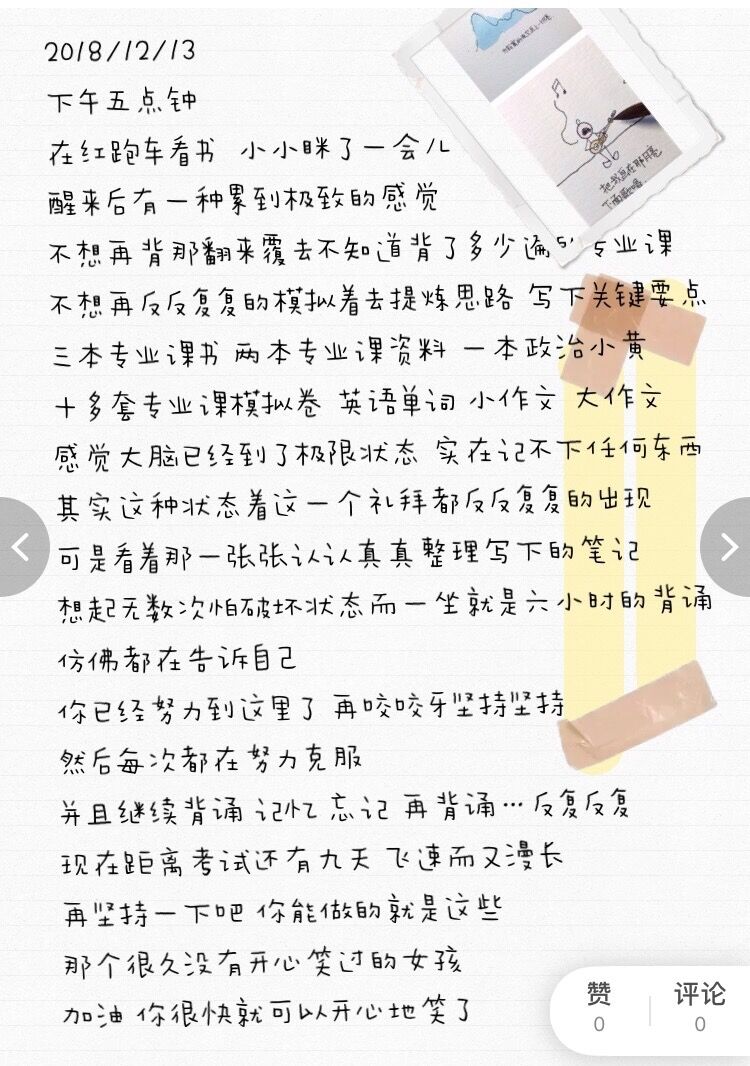 2018/12/13
下午五点钟
在红跑车看书 小小眯了一会儿
醒来后有一种累到极致的感觉
不想再背那翻来覆去不知道背了多少遍的专业课
不想再反反复复的模拟着去提炼思路 写下关键要点
三本专业课书 两本专业课资料 一本政治小黄
十多套专业课模拟卷 英语单词 小作文 大作文
感觉大脑已经到了极限状态 实在记不下任何东西
其实这种状态着这一个礼拜都反反复复的出现
可是看着那一张张认认真真整理写下的笔记
想起无数次怕破坏状态而一坐就是六小时的背诵
仿佛都在告诉自己
你已经努力到这里了 再咬咬牙坚持坚持
然后每次都在努力克服
并且继续背诵 记忆 忘记 再背诵…反复反复
现在距离考试还有九天 飞速而又漫长
再坚持一下吧 你能做的就是这些
那个很久没有开心笑过的女孩
加油 你很快就可以开心地笑了
把我画在那月亮
下面歌唱
赞
0
评论
0